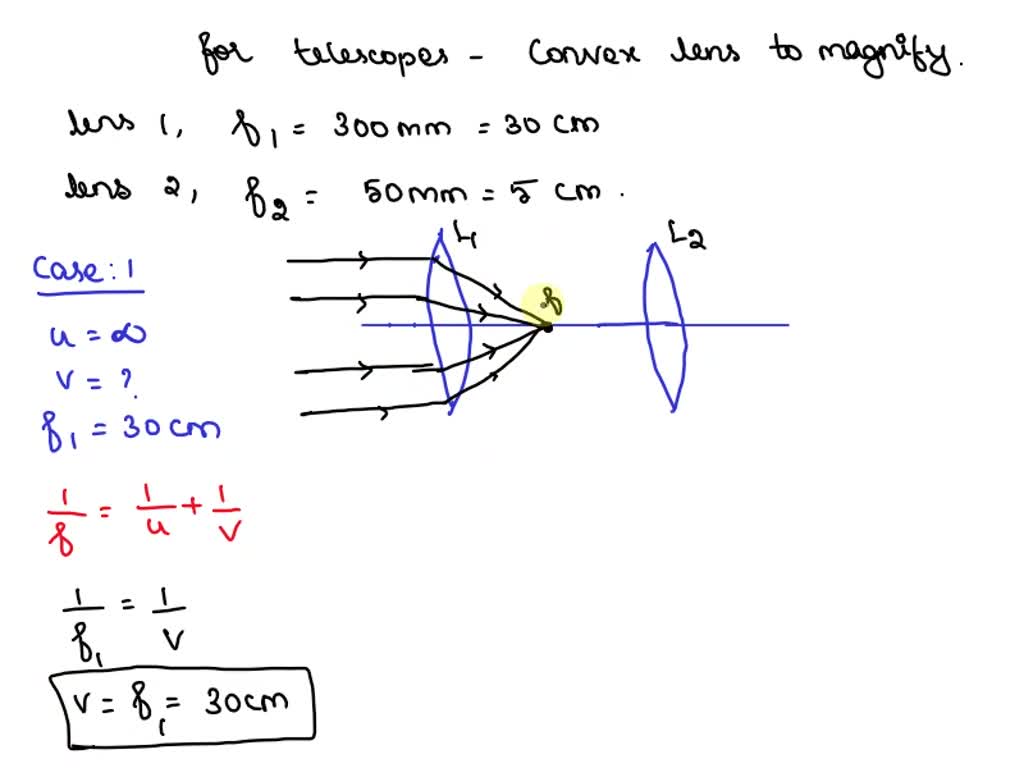 for telescopes - Convex lens to magnify.
lens 1, f₁ = 300 mm = 30 cm
lens 2, f₂ = 50 mm = 5 cm.
L₁
L₂
f
Case: 1
u = ∞
v = ?
f₁ = 30 cm
1/f = 1/u + 1/v
1/f₁ = 1/v
v = f₁ = 30 cm